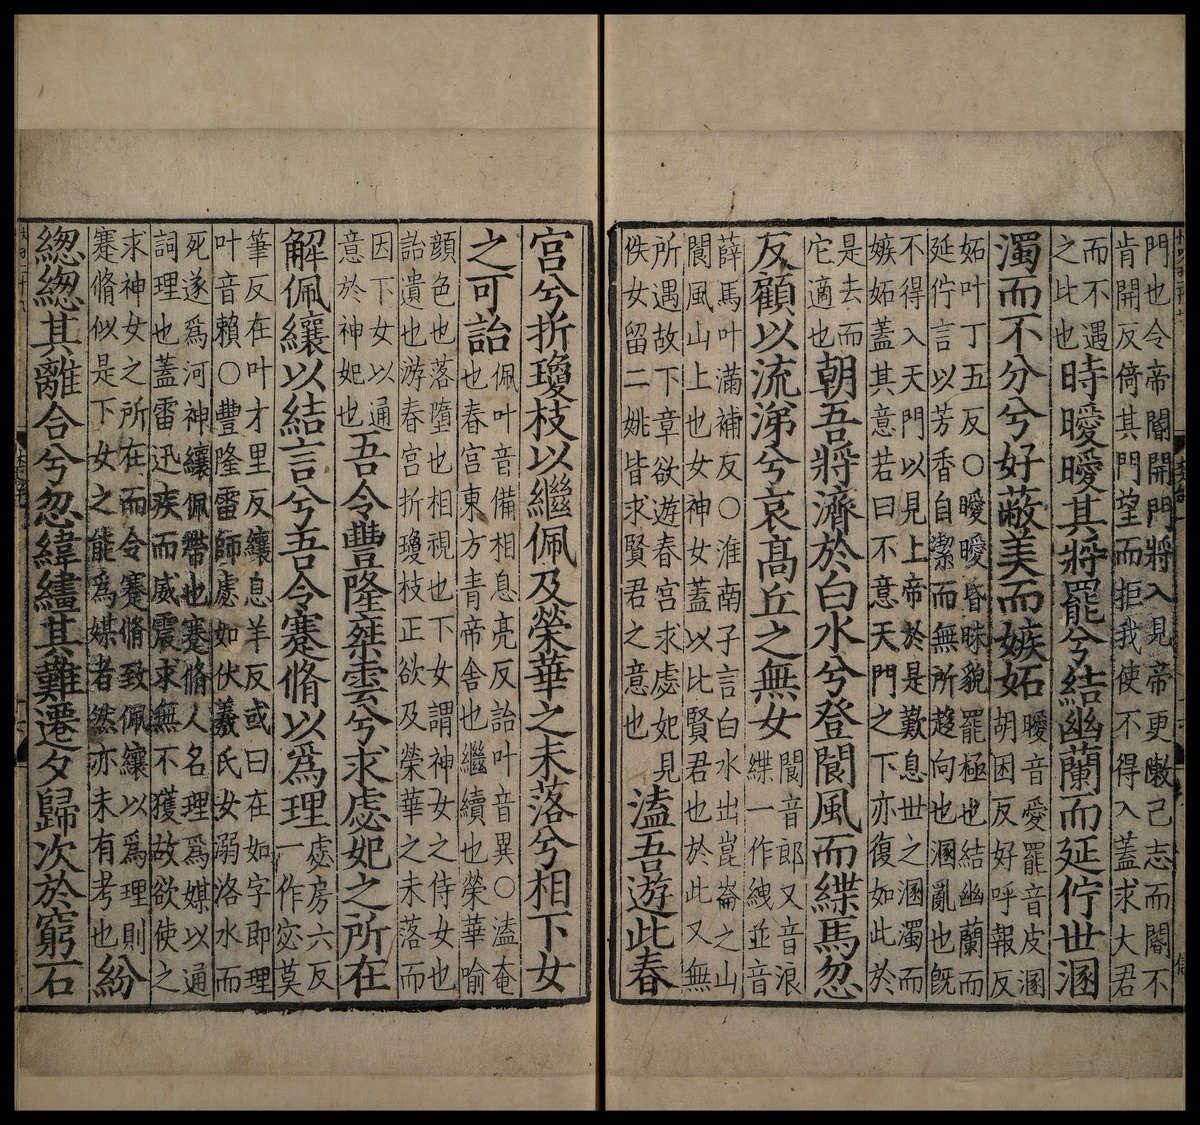 門也令帝閽開門將入見帝更敶己志而閽不
肯開反倚其門望而拒我使不得入蓋求大君
而不遇
之比也
時曖曖其將罷兮結幽蘭而延佇世溷
濁而不分兮好蔽美而嫉妬
曖音愛罷音皮溷
胡困反好呼報反
妬叶丁五反○曖曖昏昧貌罷極也結幽蘭而
延佇言以芳香自潔而無所趨向也溷亂也旣
不得入天門以見上帝於是歎息世之溷濁而
嫉妬蓋其意若曰不意天門之下亦復如此於
是去而
它適也
朝吾將濟於白水兮登閬風而緤馬忽
反顧以流涕兮哀高丘之無女
閬音郎又音浪
緤一作絏並音
薛馬叶滿補反○淮南子言白水出崑崙之山
閬風山上也女神女蓋以比賢君也於此又無
所遇故下章欲遊春宮求虙妃見
佚女留二姚皆求賢君之意也
溘吾遊此春
宮兮折瓊枝以繼佩及榮華之未落兮相下女
之可詒
佩叶音備相息亮反詒叶音異○溘奄
也春宮東方青帝舍也繼續也榮華喻
顏色也落墮也相視也下女謂神女之侍女也
詒遺也游春宮折瓊枝正欲及榮華之未落而
因下女以通
意於神妃也
吾令豐隆椉雲兮求虙妃之所在
解佩纕以結言兮吾令蹇脩以爲理
虙房六反
一作宓莫
筆反在叶才里反纕息羊反或曰在如字即理
叶音賴○豐隆雷師虙如伏羲氏女溺洛水而
死遂爲河神纕佩帶也蹇脩人名理爲媒以通
詞理也蓋雷迅疾而威震求無不獲故欲使之
求神女之所在而令蹇脩致佩纕以爲理則
蹇脩似是下女之能爲媒者然亦未有考也
紛
緫緫其離合兮忽緯繣其難遷夕歸次於窮石